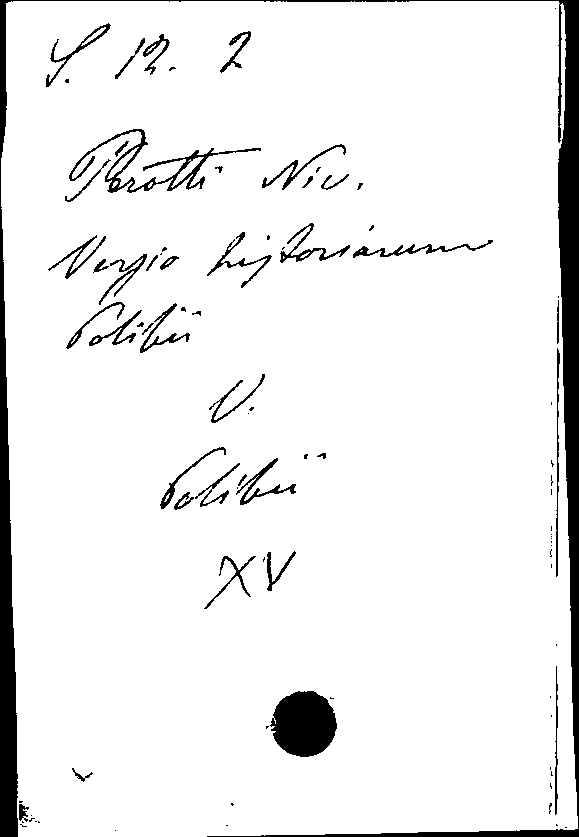 S. 12. 2
Perotti Nic.
Versio historiarum
Polibii
V.
Polibii
XV